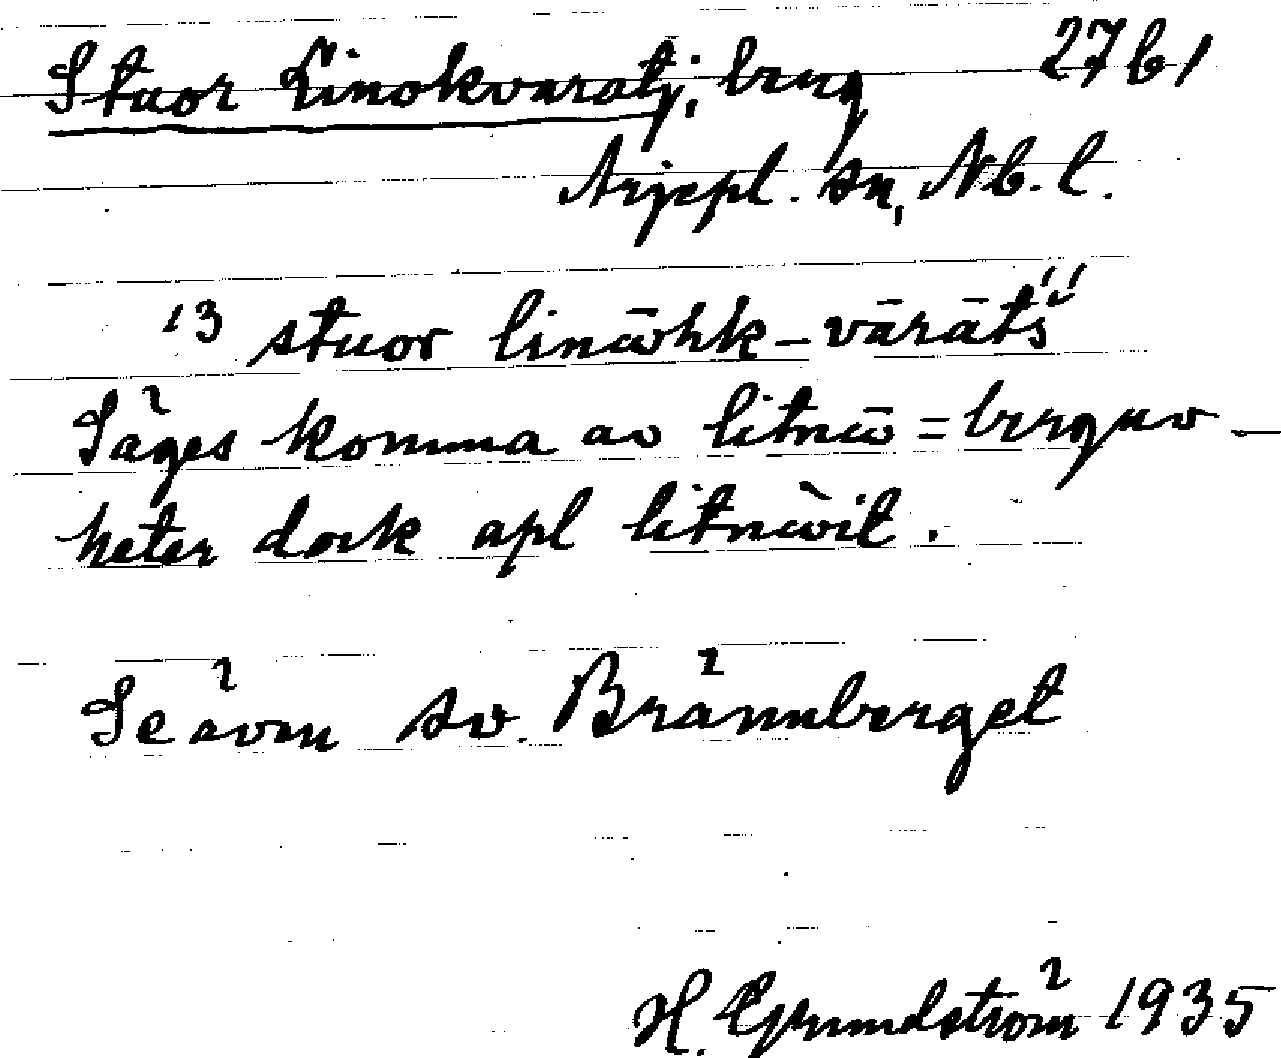 Stuor Linokvaratj, berg 27b1
Arjepl. sn, Nb. l.
13 stuor linω̄hk-vārātš́
Säges komma av litnω̄ = berguv -
heter dock apl litnὼit.
Se även sv. Brännberget
H. Grundström 1935